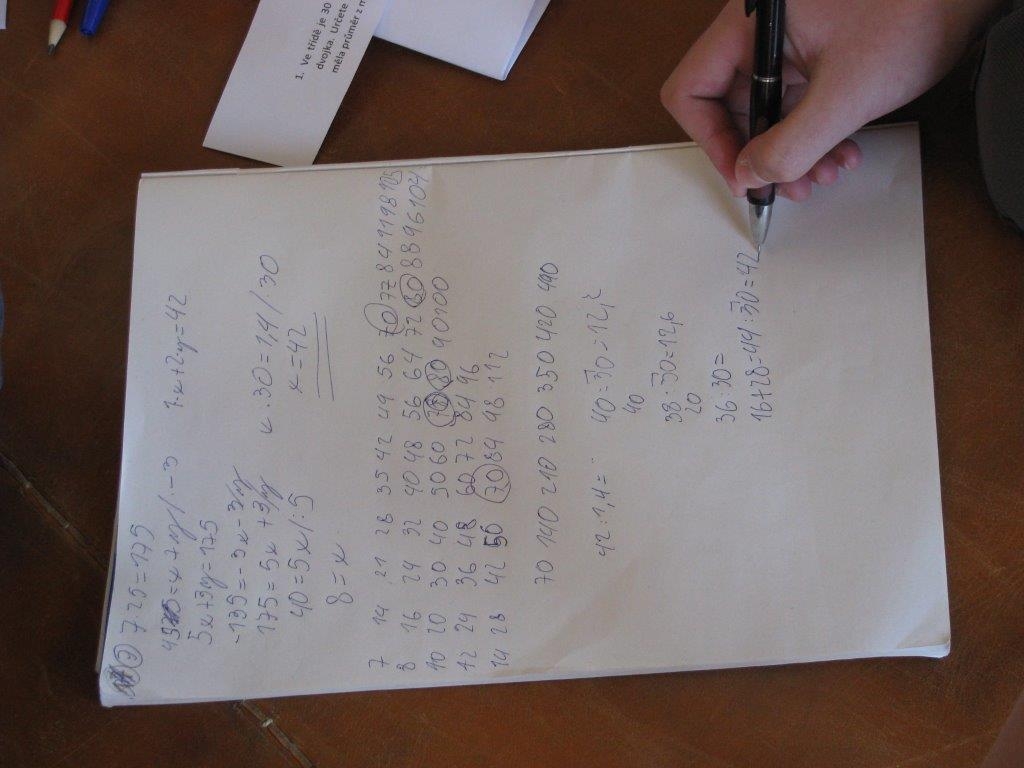 1. Ve třídě je 30
dvojka. Určete
měla průměr z m
3) 7·25=175
5x+3y=175
-135=-3x-3y
175=5x+3y
40=5x/:5
8=x
1·x+2·y=42
x:30=1,4/·30
x=42
7 14 21 28 35 42 49 56 70 77 84 91 98 105
8 16 24 32 40 48 56 64 72 80 88 96 104
10 20 30 40 50 60 70 80 90 100
12 24 36 48 60 72 84 96
14 28 42 56 70 84 98 112
70 140 210 280 350 420 490
42:1,4=
40:30=12,
40
38:30=12,6
20
36:30=
16+28=44:30=42